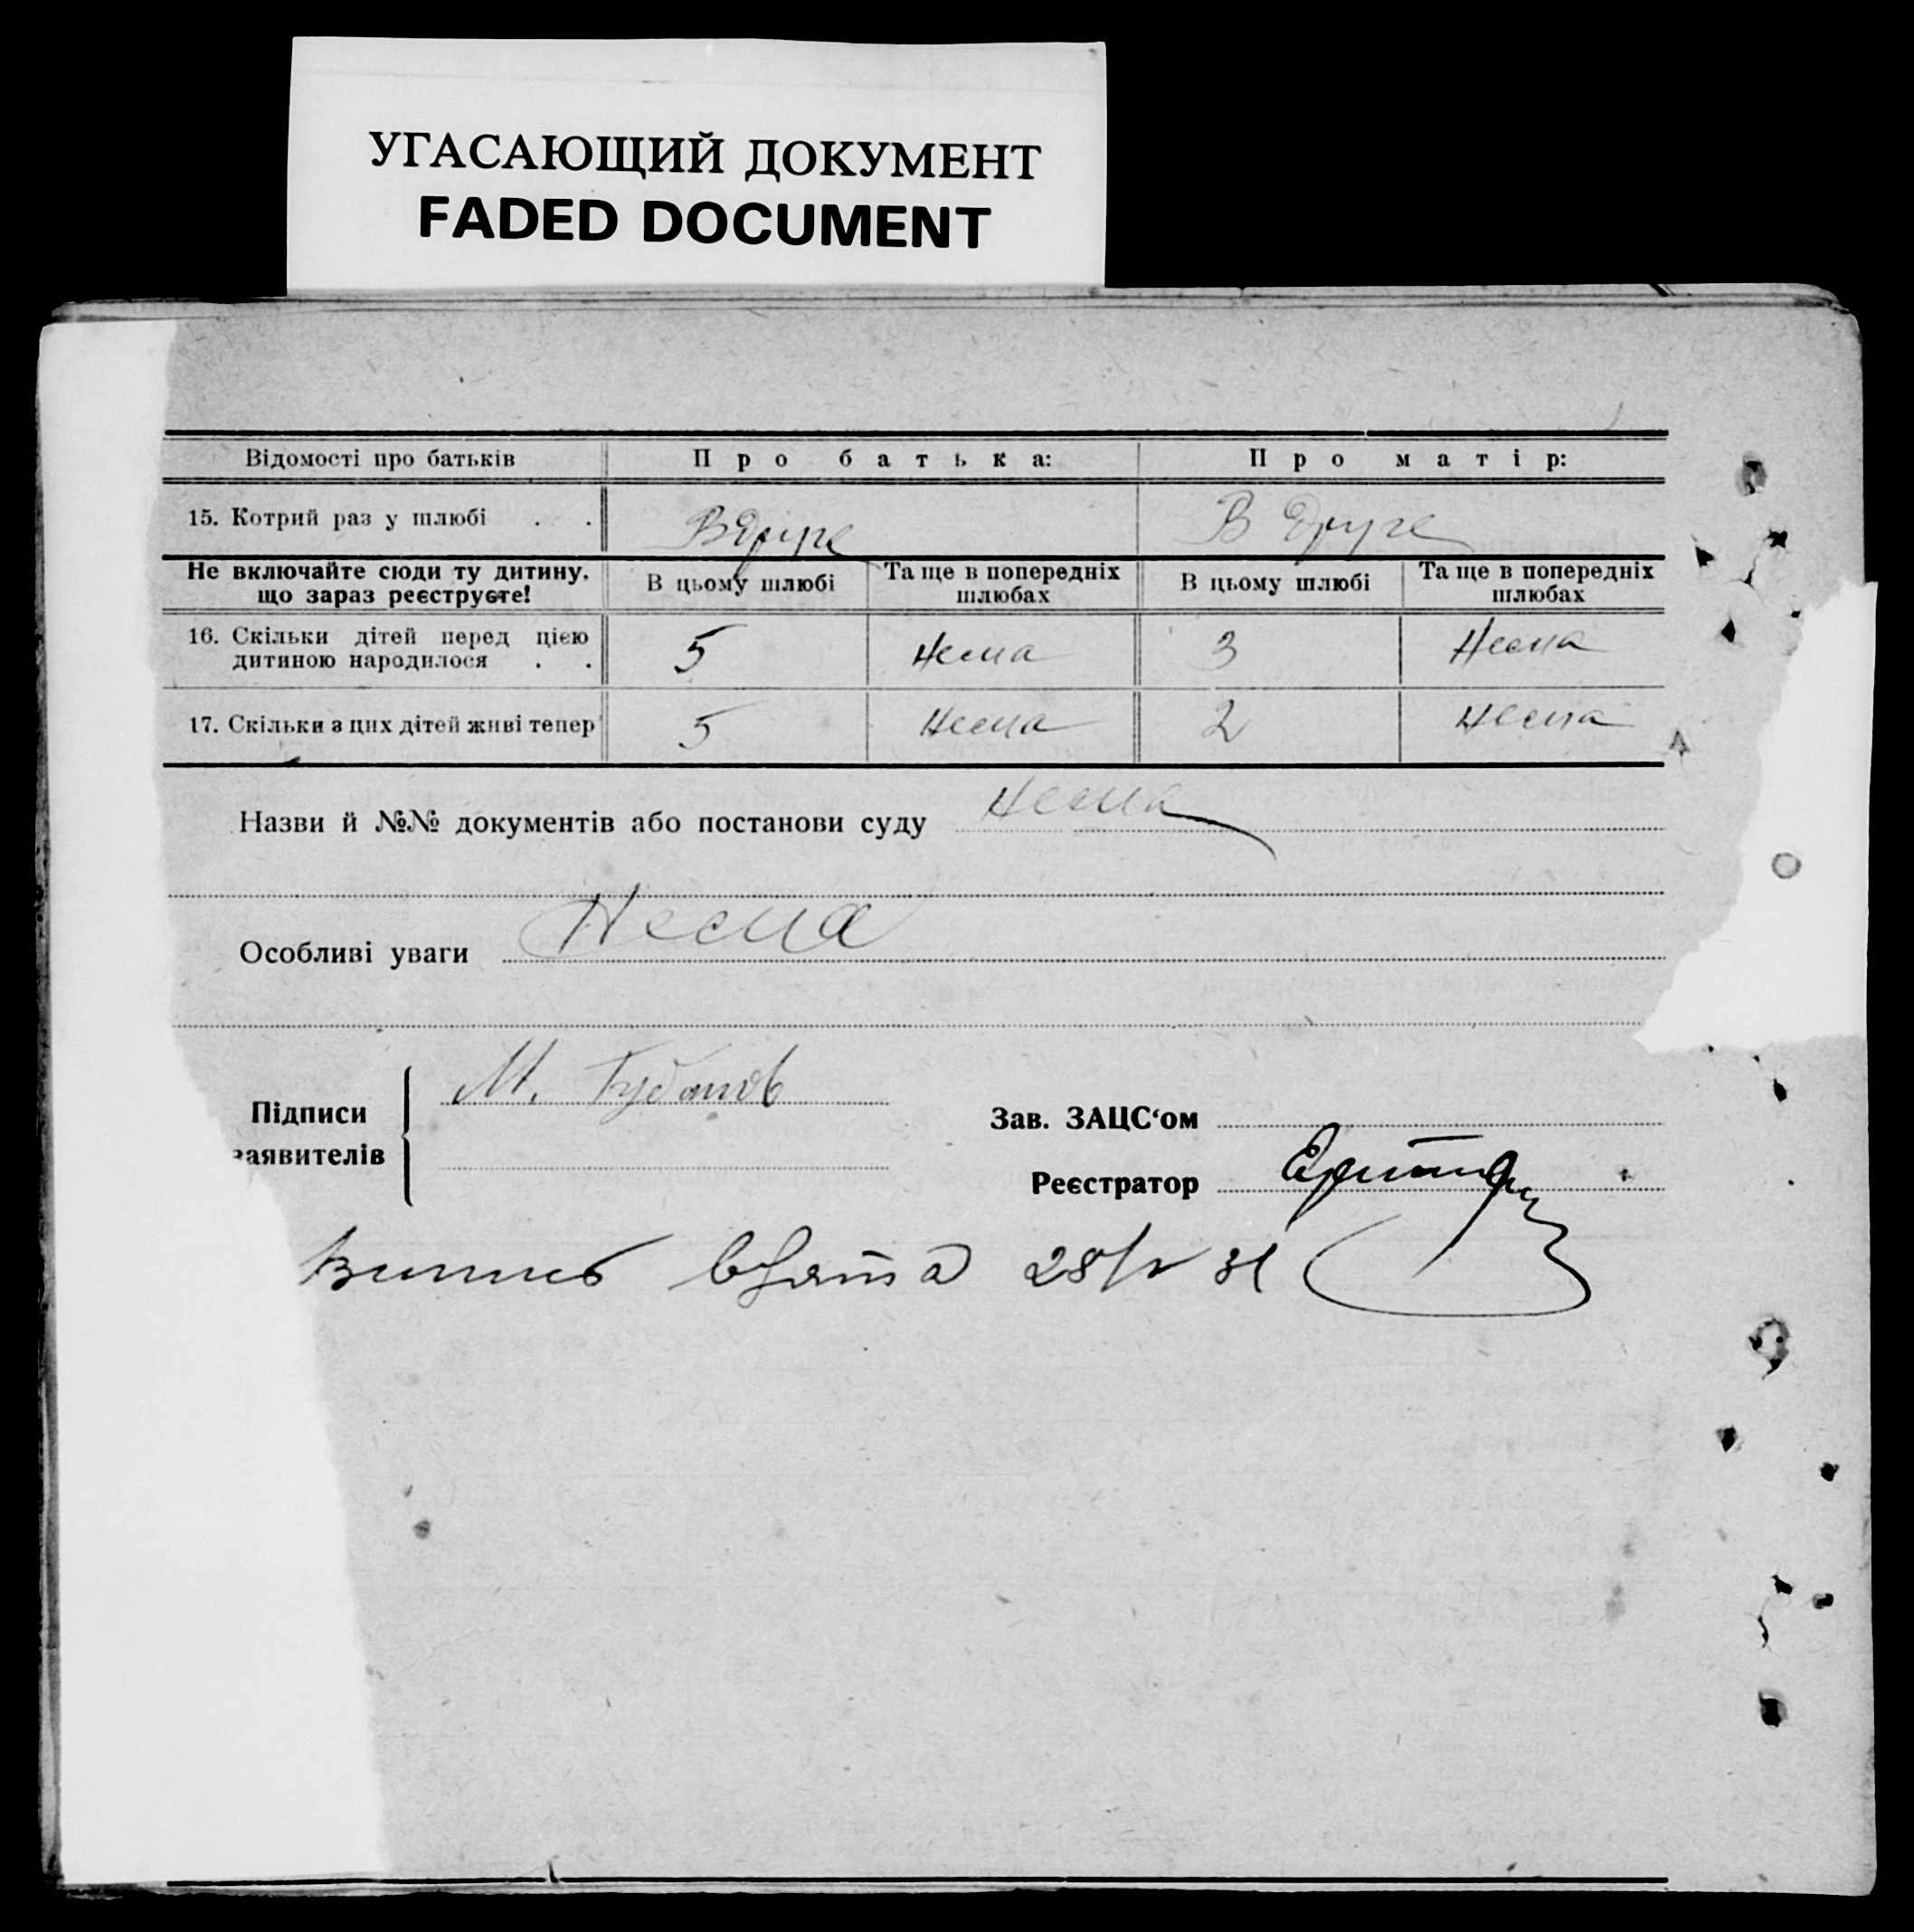 УГАСАЮЩИЙ ДОКУМЕНТ
FADED DOCUMENT
Відомості про батьків Про батька: Про матір:
15. Котрий раз у шлюбі . . Вдруге В друге
Не включайте сюди ту дитину, що зараз реєструєте! В цьому шлюбі Та ще в попередніх шлюбах В цьому шлюбі Та ще в попередніх шлюбах
16. Скільки дітей перед цією дитиною народилося . . 5 Нема 3 Нема
17. Скільки з цих дітей живі тепер 5 Нема 2 Нема
Назви й №№ документів або постанови суду Нема
Особливі уваги Нема
Підписи заявителів М. Губанов
Зав. ЗАЦС‘ом
Реєстратор
Випись взята 28/V 31